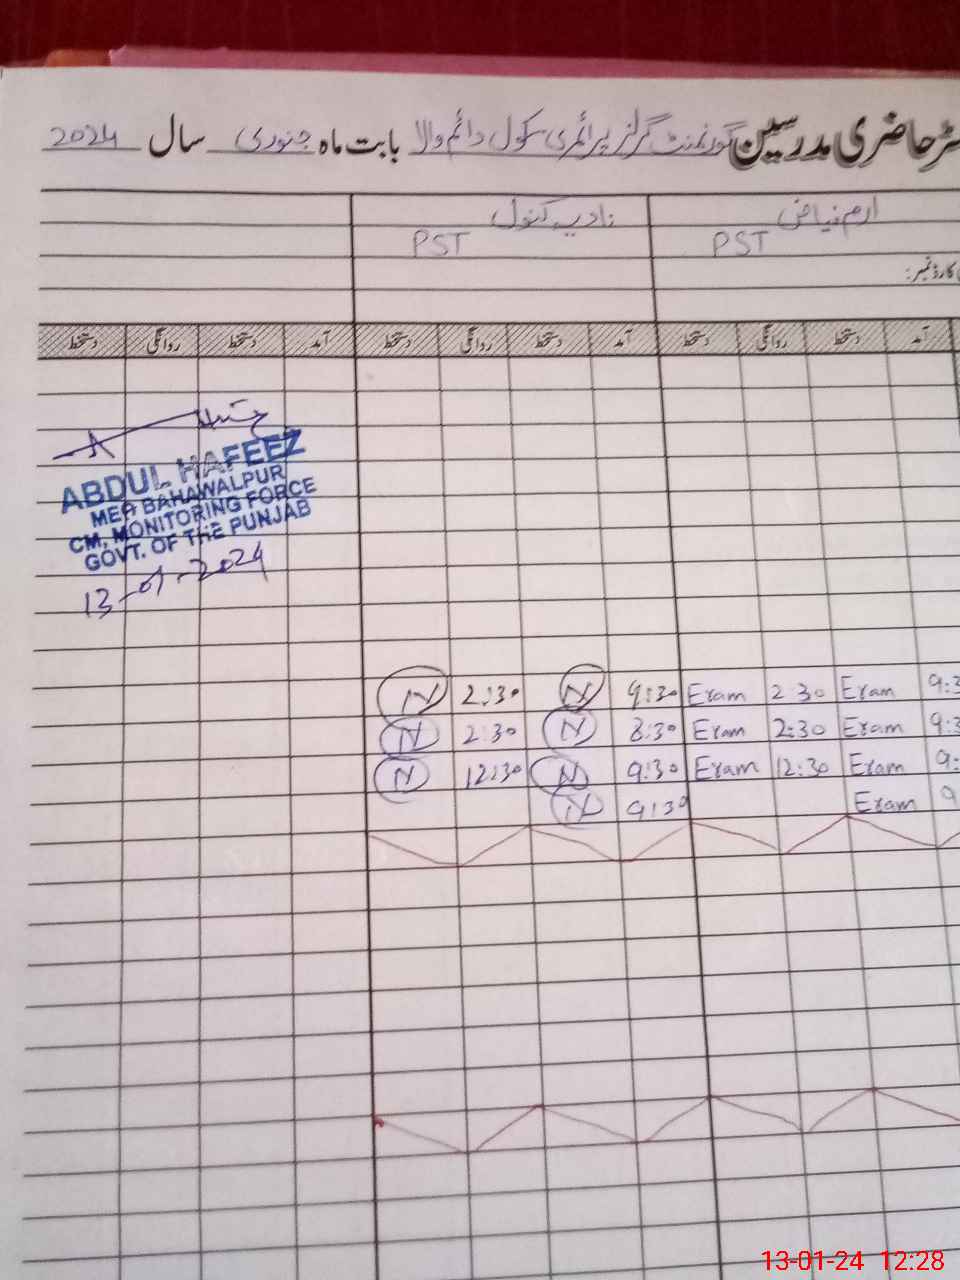 رجسٹر حاضری مدرسین گورنمنٹ گرلز پرائمری سکول دائم والا بابت ماہ جنوری سال 2024
ارم نیاض نادیہ کنول
PST PST
کارڈ نمبر:
آمد دستخط روانگی دستخط آمد دستخط روانگی دستخط آمد دستخط روانگی دستخط
ABDUL HAFEEZ
MEA BAHAWALPUR
CM, MONITORING FORCE
GOVT. OF THE PUNJAB
13-01-2024
N 2:30 N 9:30 Exam 2:30 Exam 9:3
N 2:30 N 8:30 Exam 2:30 Exam 9:3
N 12:30 N 9:30 Exam 12:30 Exam 9:
N 9:30 Exam 9
13-01-24 12:28